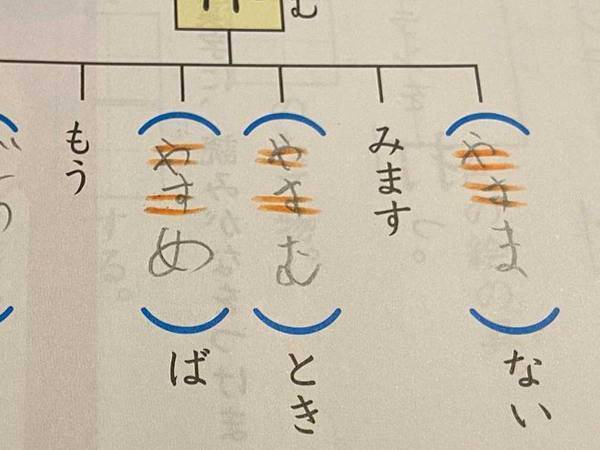 む
やすま
ない
みます
やすむ
とき
やすめ
ば
もう